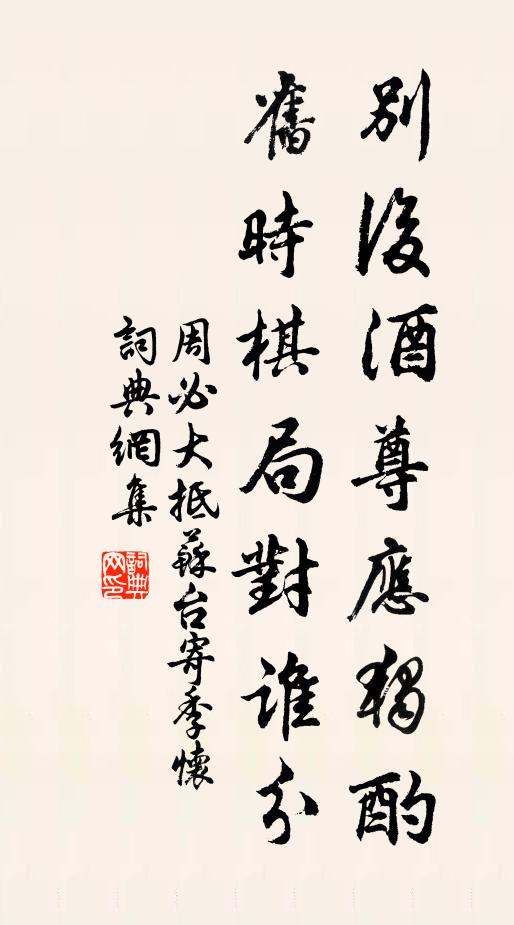 別後酒尊應獨酌
舊時棋局對誰分
周必大抵蘇台寄季懷
詞典網集
詞典
网印